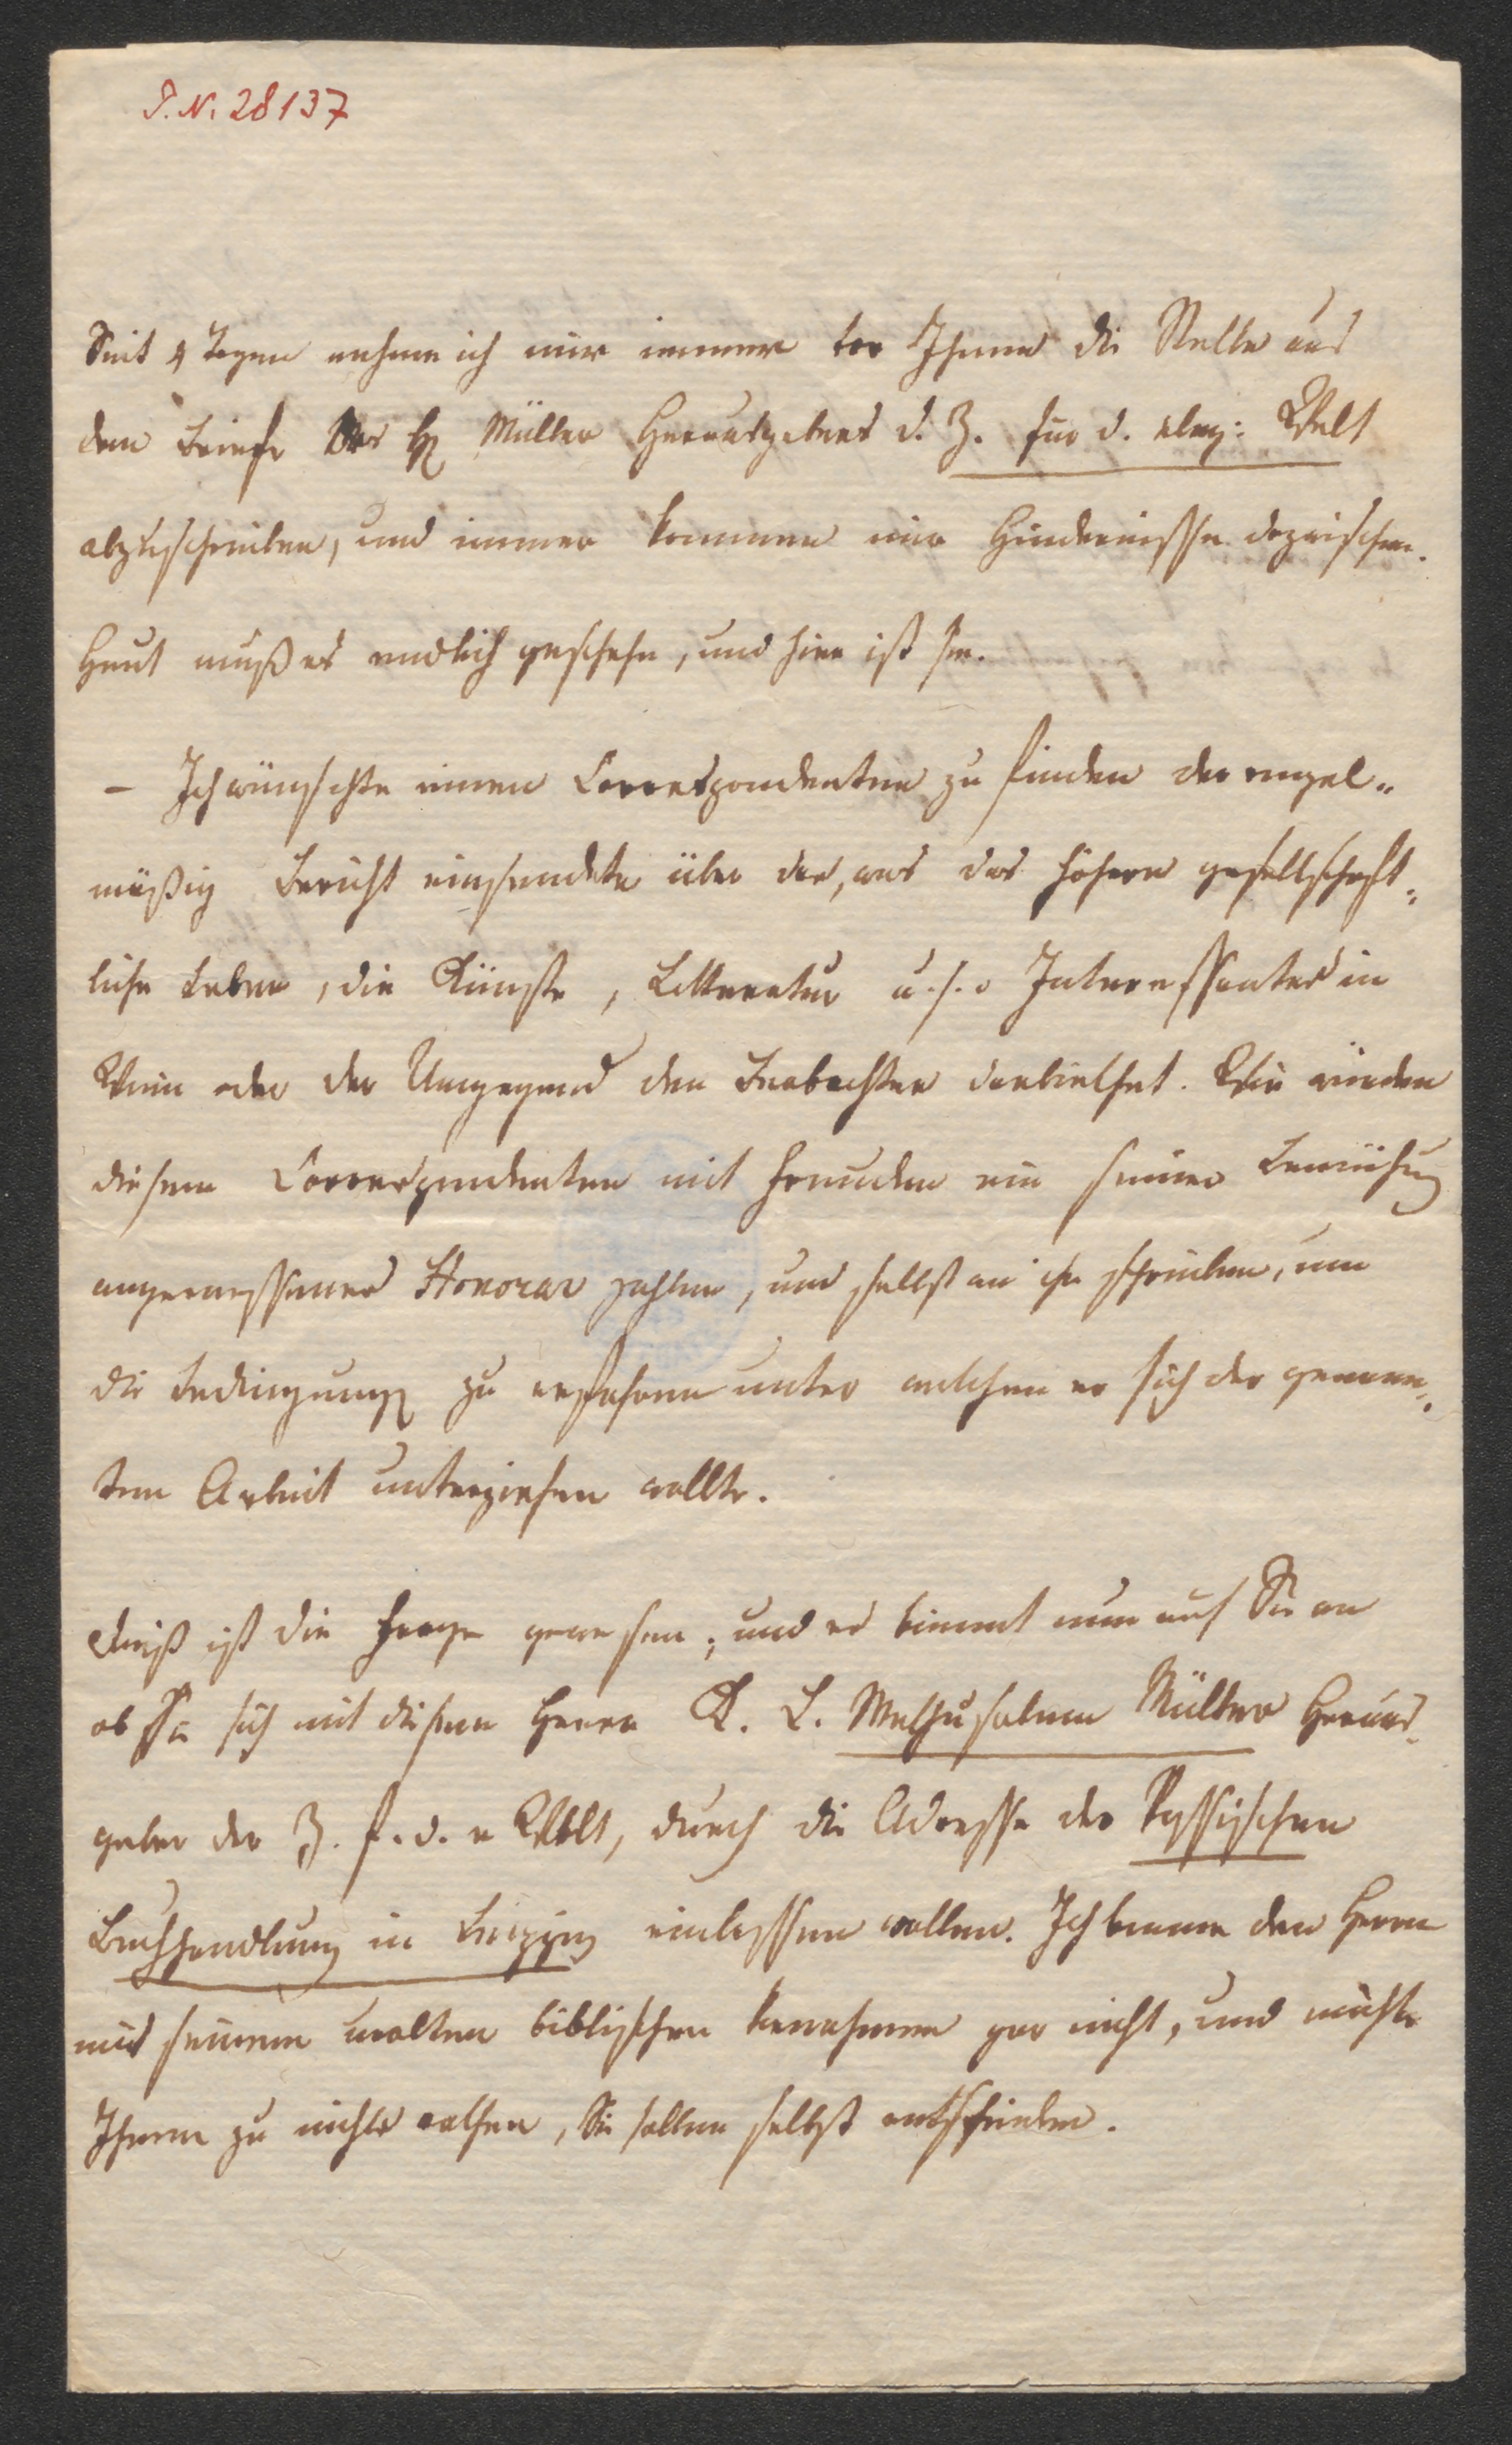 I. N. 28137
Seit 4 Tagen nehme ich mir immer vor Ihnen die Stelle aus
dem Briefe des H Müller Herausgebers d. Z. für d. eleg: Welt
abzuschreiben, und immer kommen mir Hindernisse dazwischen.
Heut muß es endlich geschehn, und hier ist sie.
– Ich wünschte einen Correspondenten zu finden der regel„
mäßig Bericht einsendete über das, was das höhere gesellschaft„
liche Leben, die Künste, Litteratur u. s. Interessantes in
Wien oder der Umgegend dem Beobachter darbiethet. Wir würden
diesem Correspondenten mit Freuden ein seiner Bemühung
angemessenes Honorar zahlen, und selbst an ihn schreiben, um
die Bedingung zu erfahren unter welchen er sich der genann„
ten Arbeit unterziehen wollte.
Dieß ist die Frage gewesen, und es kömmt nun auf Sie an
ob Sie sich mit diesem Herrn K. L. Methusalem Müller Heraus„
geber der Z. f. d. e Welt, durch die Adresse der Vossischen
Buchhandlung in Leipzig einlassen wollen. Ich kenne den Herrn
mit seinem uralten biblischen Vornahmen gar nicht, und möchte
Ihnen zu nichts rathen, Sie sollen selbst entscheiden.